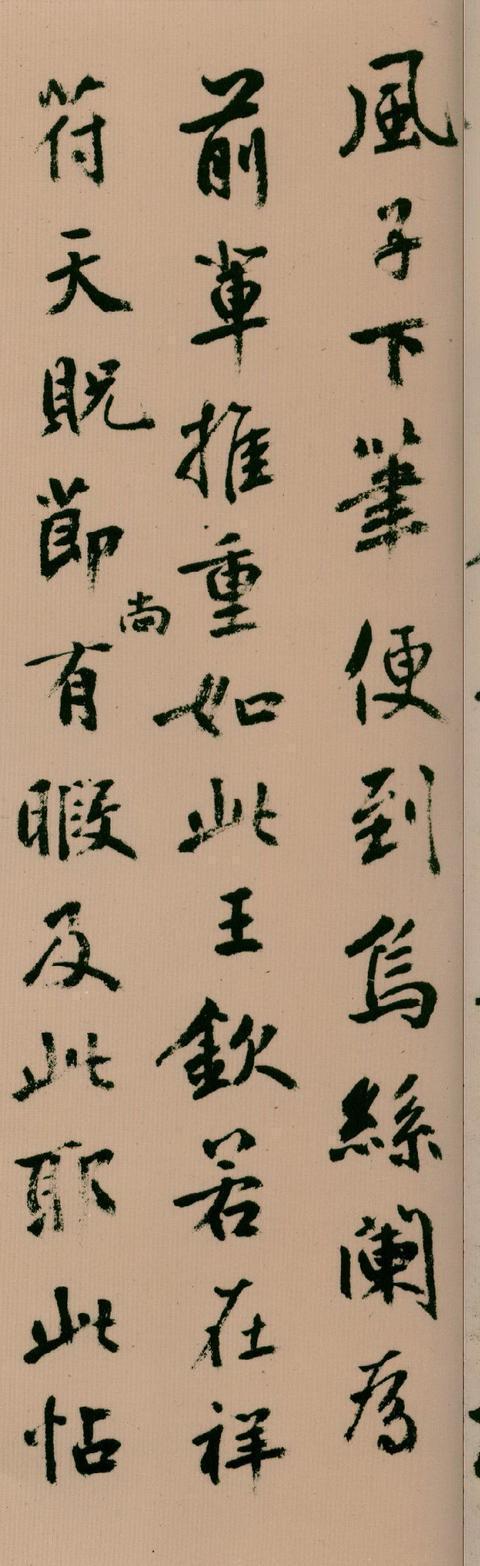 風子下筆便到烏絲闌為
前輩推重如此王欽若在祥
符天貺節尚有暇及此耶此帖